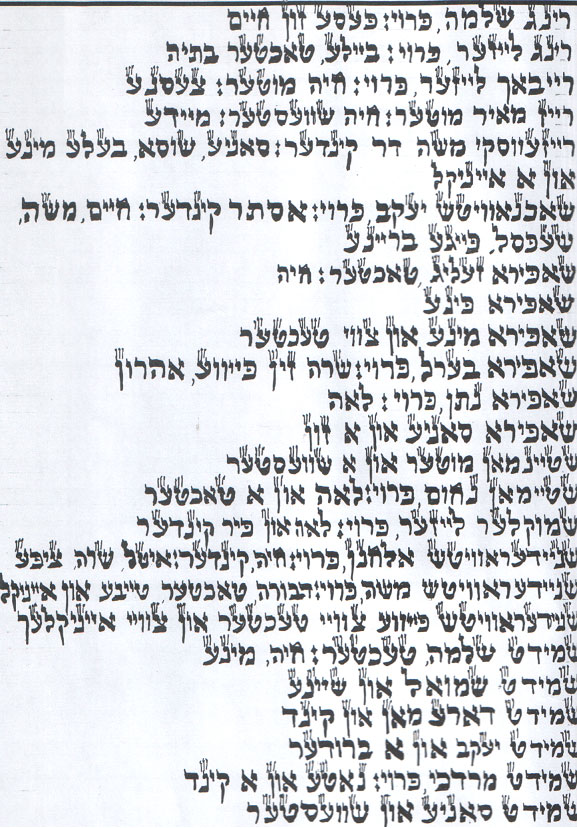 רינג שלמה, פרוי: פעסע זון חיים
רינג לייזער, פרוי: ביילע, טאכטער בתיה
רייבאך לייזער, פרוי: חיה מוטער: צעסנע
ריין מאיר מוטער: חיה שוועסטער: מיידע
רייזעווסקי משה דר קינדער: סאניע, שוסא, בעלע מינע
און א אייניקל
שאכנאוויטש יעקב, פרוי: אסתר קינדער: חיים, משה,
שעפסל, פייגע בריינע
שאפירא זעליג, טאכטער: חיה
שאפירא פינע
שאפירא מינע און צווי טעכטער
שאפירא בערל, פרוי: שרה זין פייווע, אהרון
שאפירא נתן, פרוי: לאה
שאפירא סאניע און א זון
שטיינמאן מוטער און א שוועסטער
שטיימאן נחום, פרוי: לאה און א טאכטער
שמוקלער לייזער, פרוי: לאה און פיר קינדער
שניידעראוויטש אלחנן, פרוי: חיה, קינדער: איטל, שרה, ציפע
שניידעראוויטש משה, פרוי: דבורה, טאכטער, טייבע און אייניקל
שנידעראוויטש פייווע צווייי טעכטער און צוויי אייניקלעך
שמידט שלמה, טעכטער: חיה, מינע
שמידט שמואל און שיינע
שמידט דארע מאן און קינד
שמידט יעקב און א ברודער
שמידט מרדכי, פרוי: נאטע און א קינד
שמידט סאניע און שוועסטער